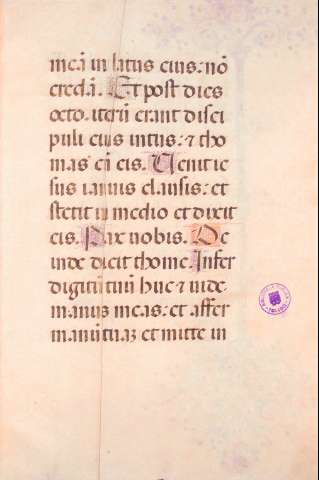 meā in latus eius: nō
credā. Et post dies
octo. iterū erant disci
puli eius intus: ⁊ tho
mas cū eis. Venit ie
sus ianuis clausis: et
stetit in medio et dixit
eis. Pax vobis. De
inde dicit thome. Infer
digitū tuū huc ⁊ uide
manus meas: et affer
manū tuaꝫ et mitte in